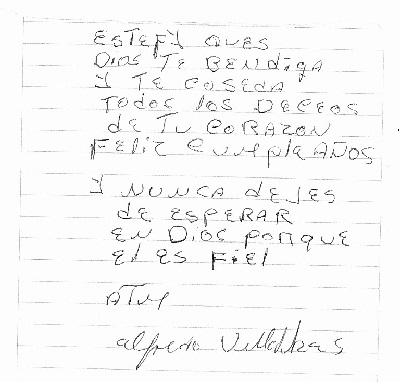 ESTEFY QUES
DIOS TE BENDIGA
Y TE COSEDA
TODOS LOS DECEOS
DE TU CORAZON
FELIZ CUMPLEAÑOS
Y NUNCA DEJES
DE ESPERAR
EN DIOS PORQUE
EL ES FIEL
ATU
alfredo